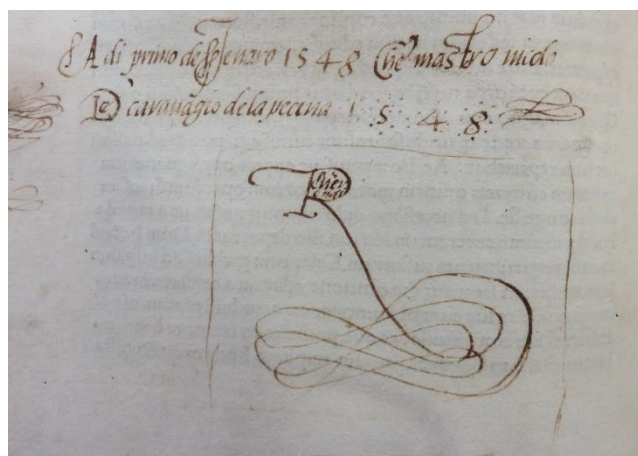 A di primo de Jenaro 1548 Che mastro nicolo
De cavavagio de la pecena 1 5 4 8